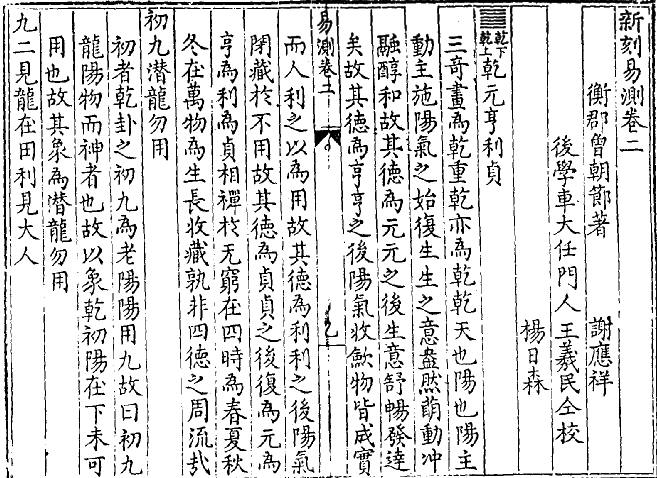 新刻易測卷二
衡郡曾朝節著　謝應祥
後學車大任門人王義民仝校
楊日森
䷀乾下乾上乾元亨利貞
三奇畫為乾重乾亦為乾乾天也陽也陽主
動主施陽氣之始復生生之意盎然萌動冲
融醇和故其德為元元之後生意舒暢發達
矣故其德為亨亨之後陽氣收歛物皆成實
易測卷二
乙
而人利之以為用故其德為利利之後陽氣
閉藏於不用故其德為貞貞之後復為元為
亨為利為貞相禪於无窮在四時為春夏秋
冬在萬物為生長收藏孰非四德之周流哉
初九潛龍勿用
初者乾卦之初九為老陽陽用九故曰初九
龍陽物而神者也故以象乾初陽在下未可
用也故其象為潛龍勿用
九二見龍在田利見大人